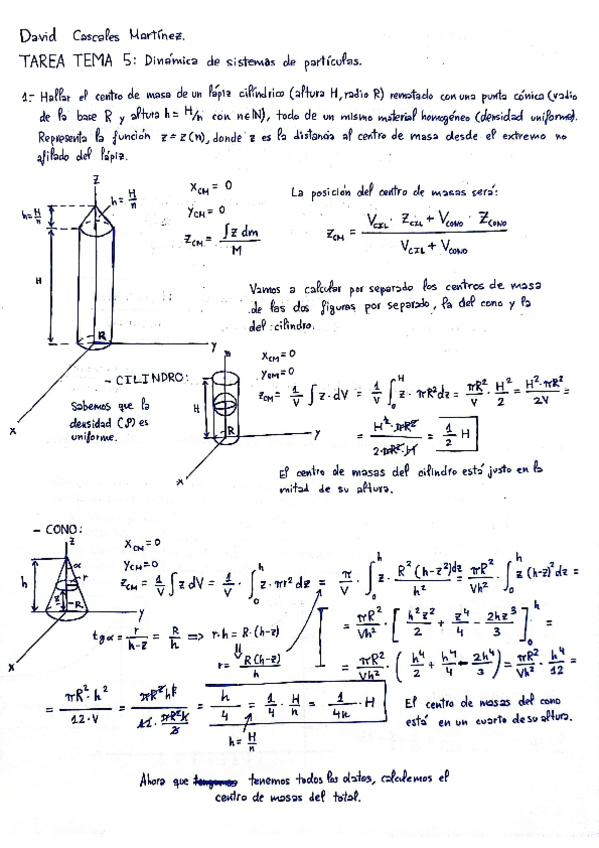 David Cascales Martínez.
TAREA TEMA 5: Dinámica de sistemas de partículas.
1.- Hallar el centro de masa de un lápiz cilíndrico (altura H, radio R) rematado con una punta cónica (radio
de la base R y altura h = H/n con n∈ℕ), todo de un mismo material homogéneo (densidad uniforme).
Representa la función z = z(n), donde z es la distancia al centro de masa desde el extremo no
afilado del lápiz.
z
h = H/n
h = H/n
H
R
y
x
X_CM = 0
Y_CM = 0
Z_CM = ∫z dm / M
La posición del centro de masas será:
Z_CM = (V_CIL · Z_CIL + V_CONO · Z_CONO) / (V_CIL + V_CONO)
Vamos a calcular por separado los centros de masa
de las dos figuras por separado, la del cono y la
del cilindro.
- CILINDRO:
Sabemos que la
densidad (ρ) es
uniforme.
H
R
y
x
X_CM = 0
Y_CM = 0
Z_CM = 1/V ∫ z · dV = 1/V ∫₀^H z · πR² dz = πR²/V · H²/2 = H²·πR²/2V =
= H²·πR²/2·πR²·H = 1/2 H
El centro de masas del cilindro está justo en la
mitad de su altura.
- CONO:
z
α
r
h
z
R
y
x
X_CM = 0
Y_CM = 0
Z_CM = 1/V ∫ z dV = 1/V · ∫₀^h z · πr² dz = π/V · ∫₀^h z · R²(h-z)² dz/h² = πR²/Vh² · ∫₀^h z (h-z)² dz =
tgα = r/(h-z) = R/h ⇒ r·h = R·(h-z)
r = R(h-z)/h
= πR²/Vh² · [h²z²/2 + z⁴/4 - 2hz³/3]₀^h =
= πR²/Vh² · (h⁴/2 + h⁴/4 - 2h⁴/3) = πR²/Vh² · h⁴/12 =
= πR²·h²/12·V = = h/4 = 1/4 · H/n = 1/4n · H
h = H/n
El centro de masas del cono
está en un cuarto de su altura.
Ahora que tenemos todos los datos, calculemos el
centro de masas del total.